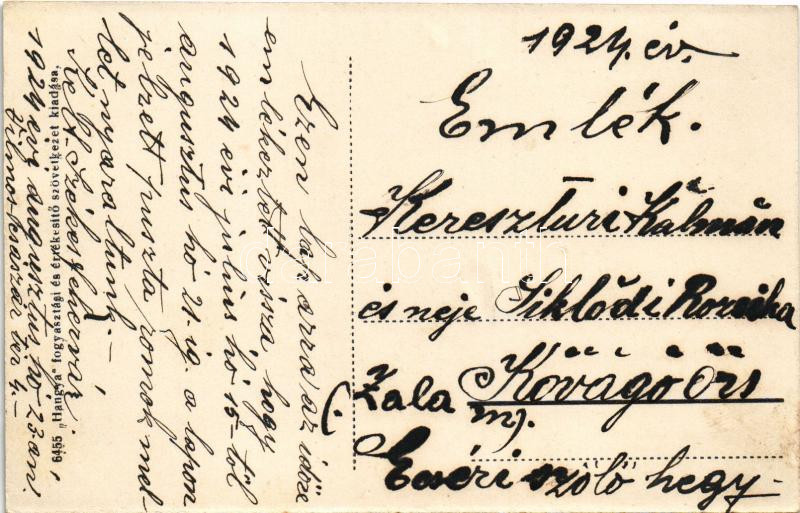 1924. év.
Emlék.
Kereszturi Kálmán
és neje Siklódi Rozsika
Kővágó Örs
Zala m.
szőlő hegy-
Ezen lap arra az időre
emlékeztet vissza, hogy
1924 évi július hó 15-től
augusztus hó 21-ig. a lapon
jelzett puszta romok mel-
let nyaraltunk.-
Kelt Székesfehérvár,
1924 évi augusztus hó 23-án.
6455 „Hangya" fogyasztási és értékesítő szövetkezet kiadása.